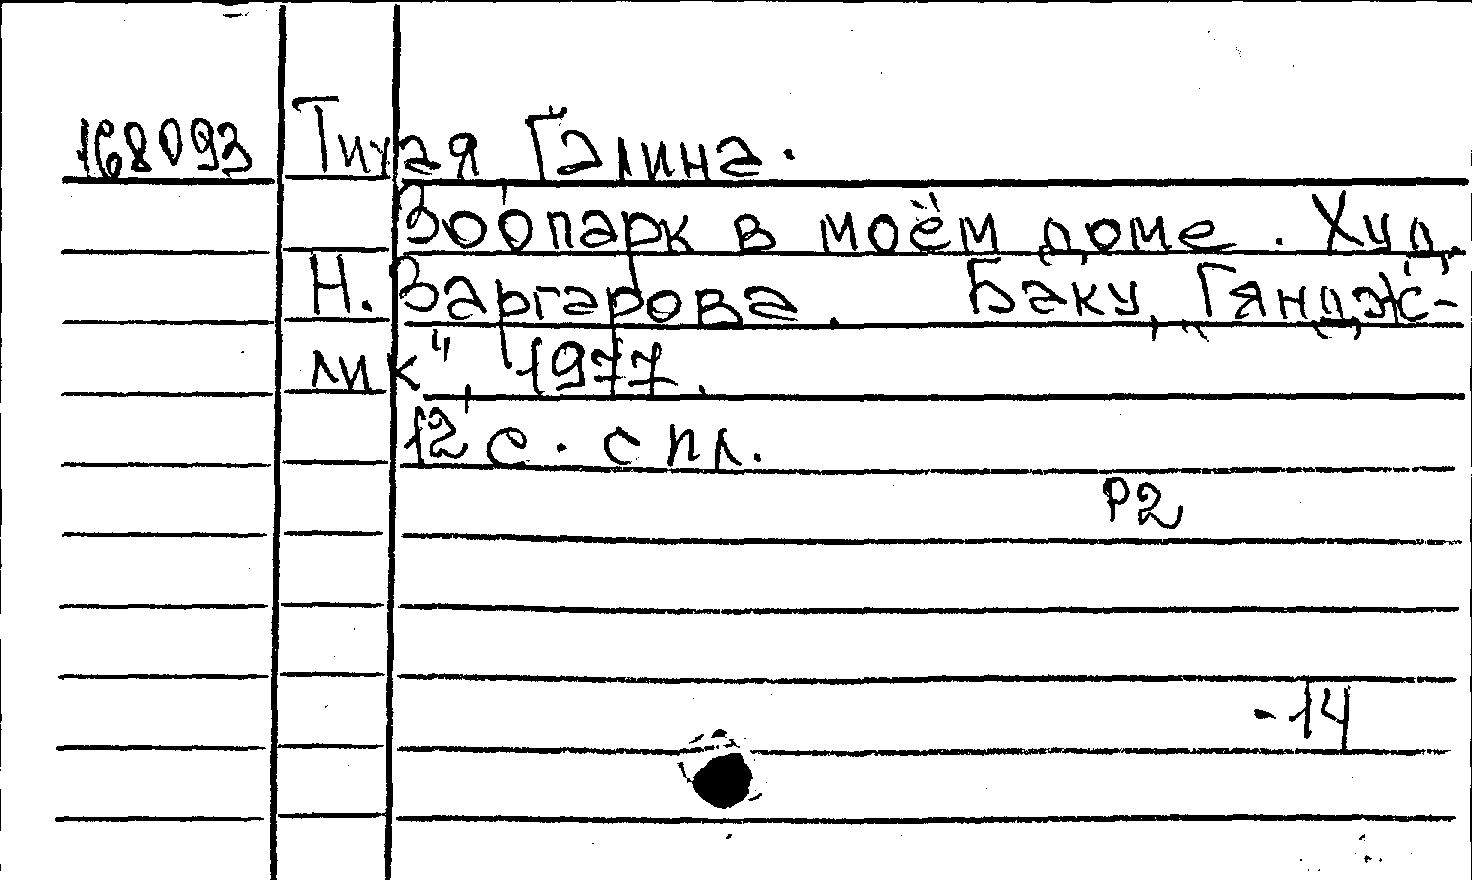 168093 Тихая Галина.
Зоопарк в моём доме. Худ.
Н. Заргарова. Баку, "Гяндж-
лик", 1977.
12 с. с ил.
Р2
-14